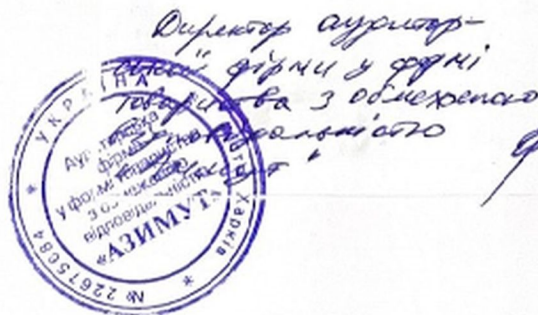 Директор аудитор-
ської фірми у формі
товариства з обмеженою
відповідальністю
"Азимут"
УКРАЇНА
місто Харків
№ 22675084
Аудиторська
фірма
у формі товариства
з обмеженою
відповідальністю
«АЗИМУТ»